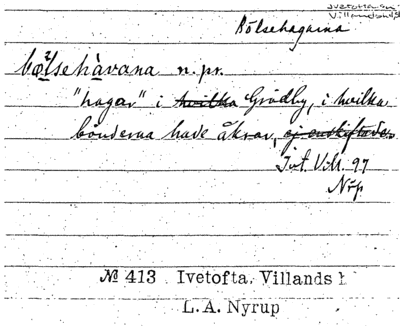 Ivetofta sn
Villands hd
Bölsehagarna
bœ̀lsehàvana n. pr.
"hagar" i hvilka Gródby, i hvilka
bönderna hade åkrar, ej enskiftade.
Ivt. V.h. 97
Nrp
№ 413 Ivetofta. Villands h
L. A. Nyrup